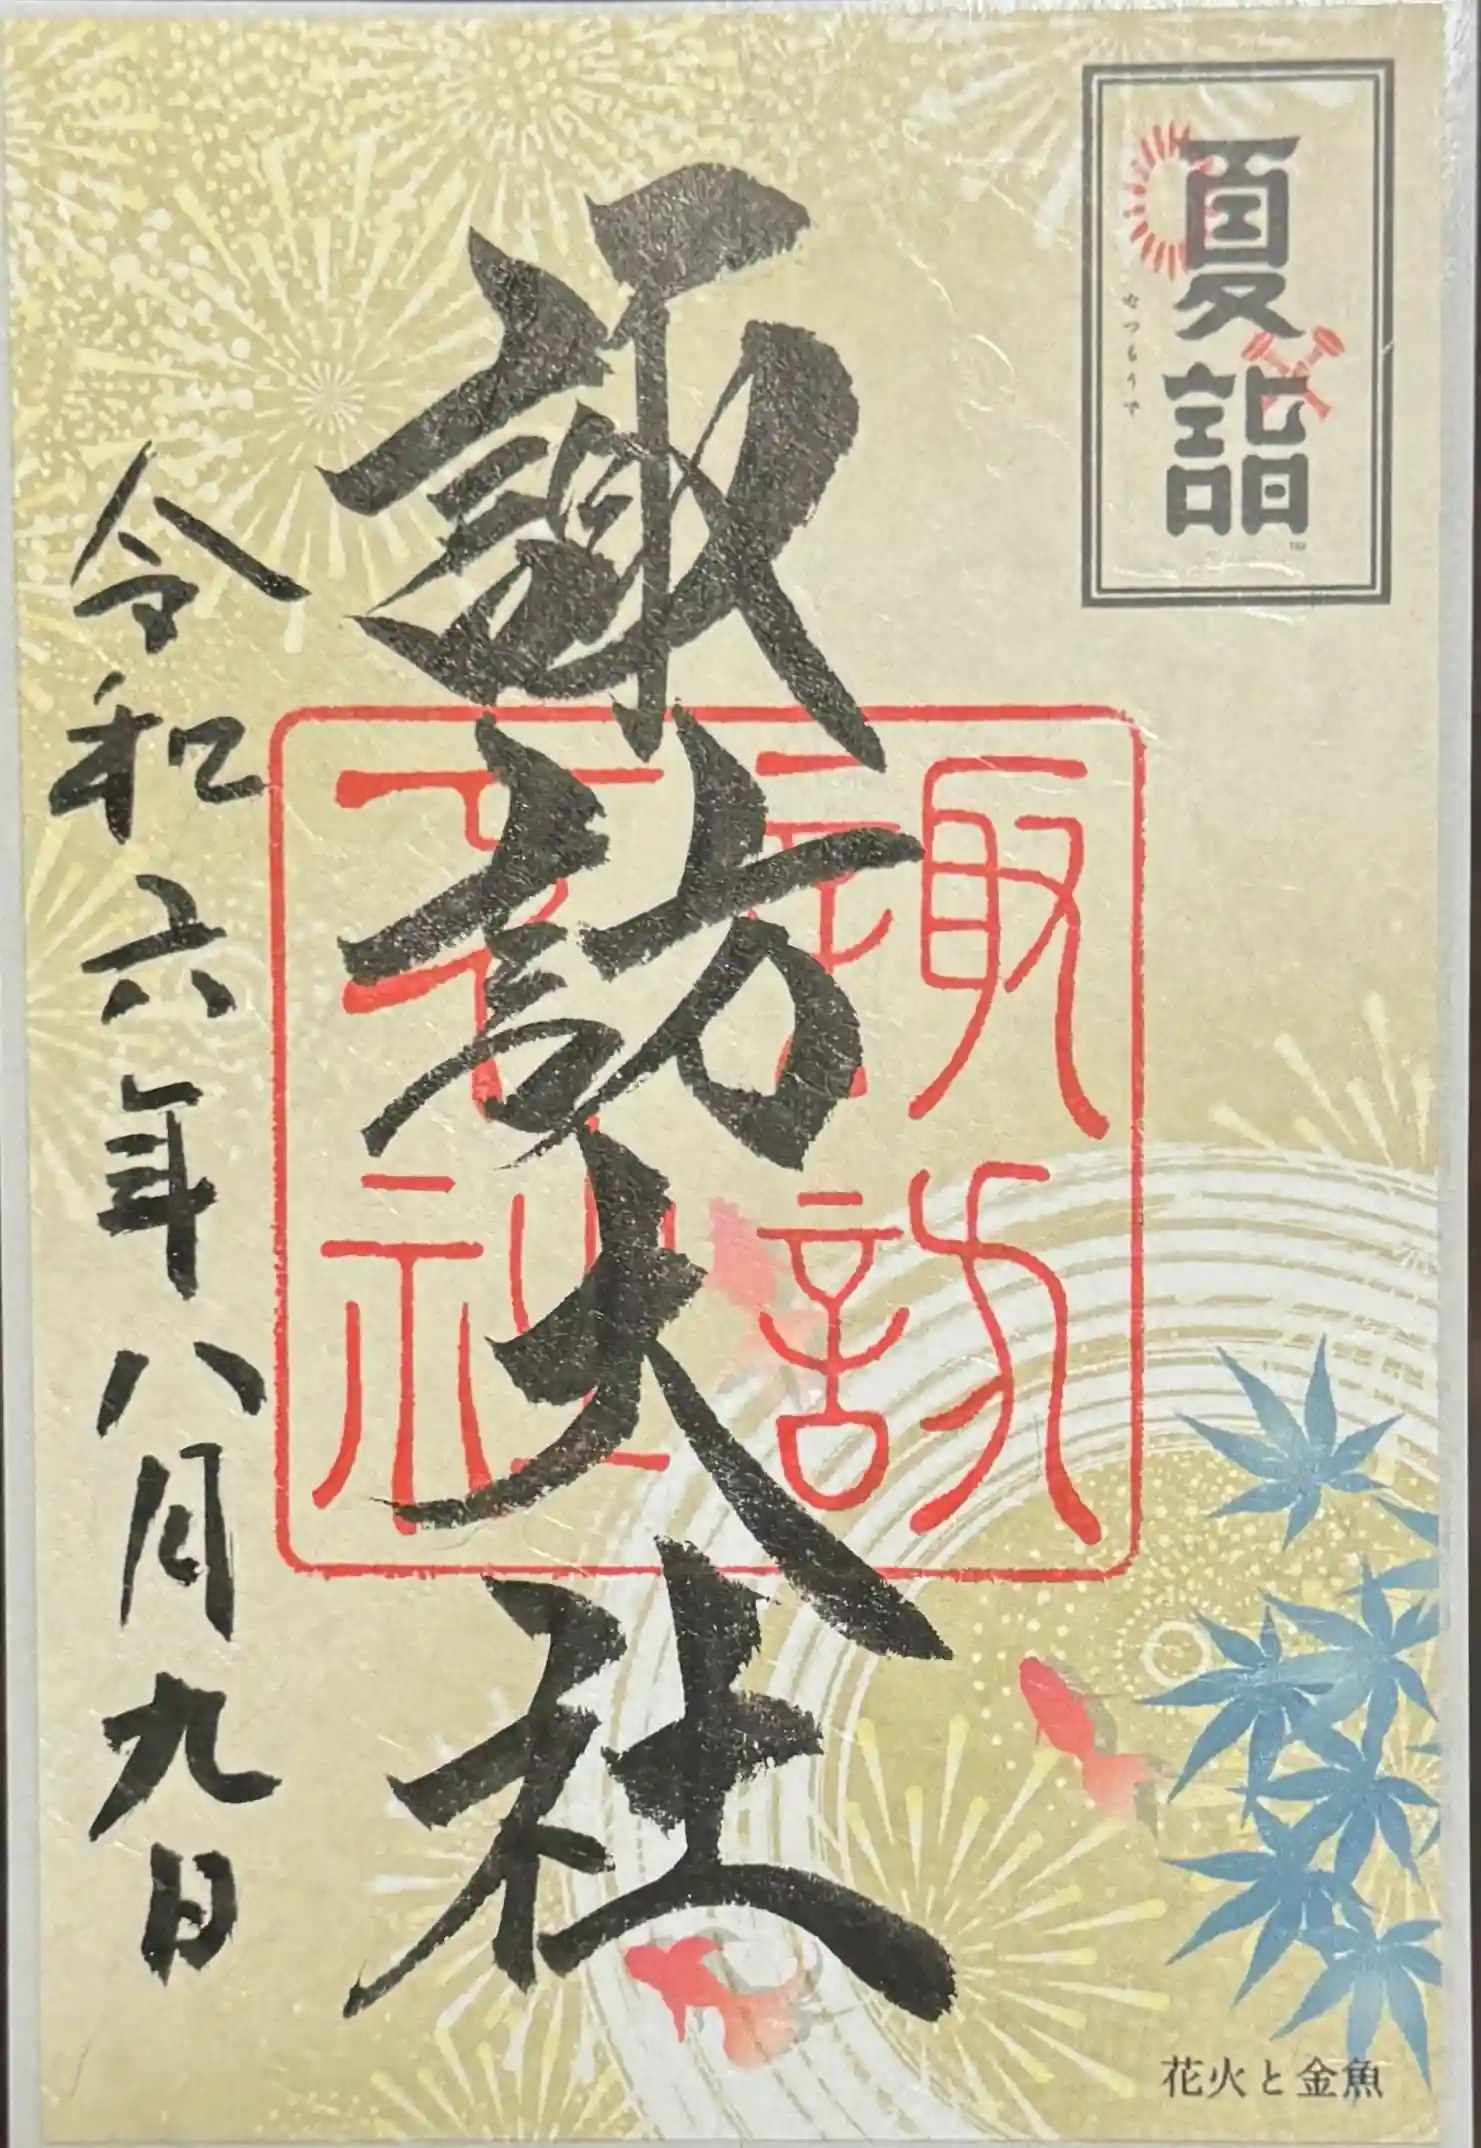 夏詣
なつもうで
諏訪大社
諏訪
社
令和六年八月九日
花火と金魚